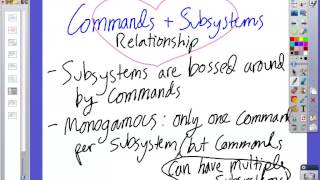 Commands + Subsystems
Relationship
- Subsystems are bossed around
by Commands
- Monogamous: only one Command
per Subsystem, but Commands
can have multiple
Subsystems